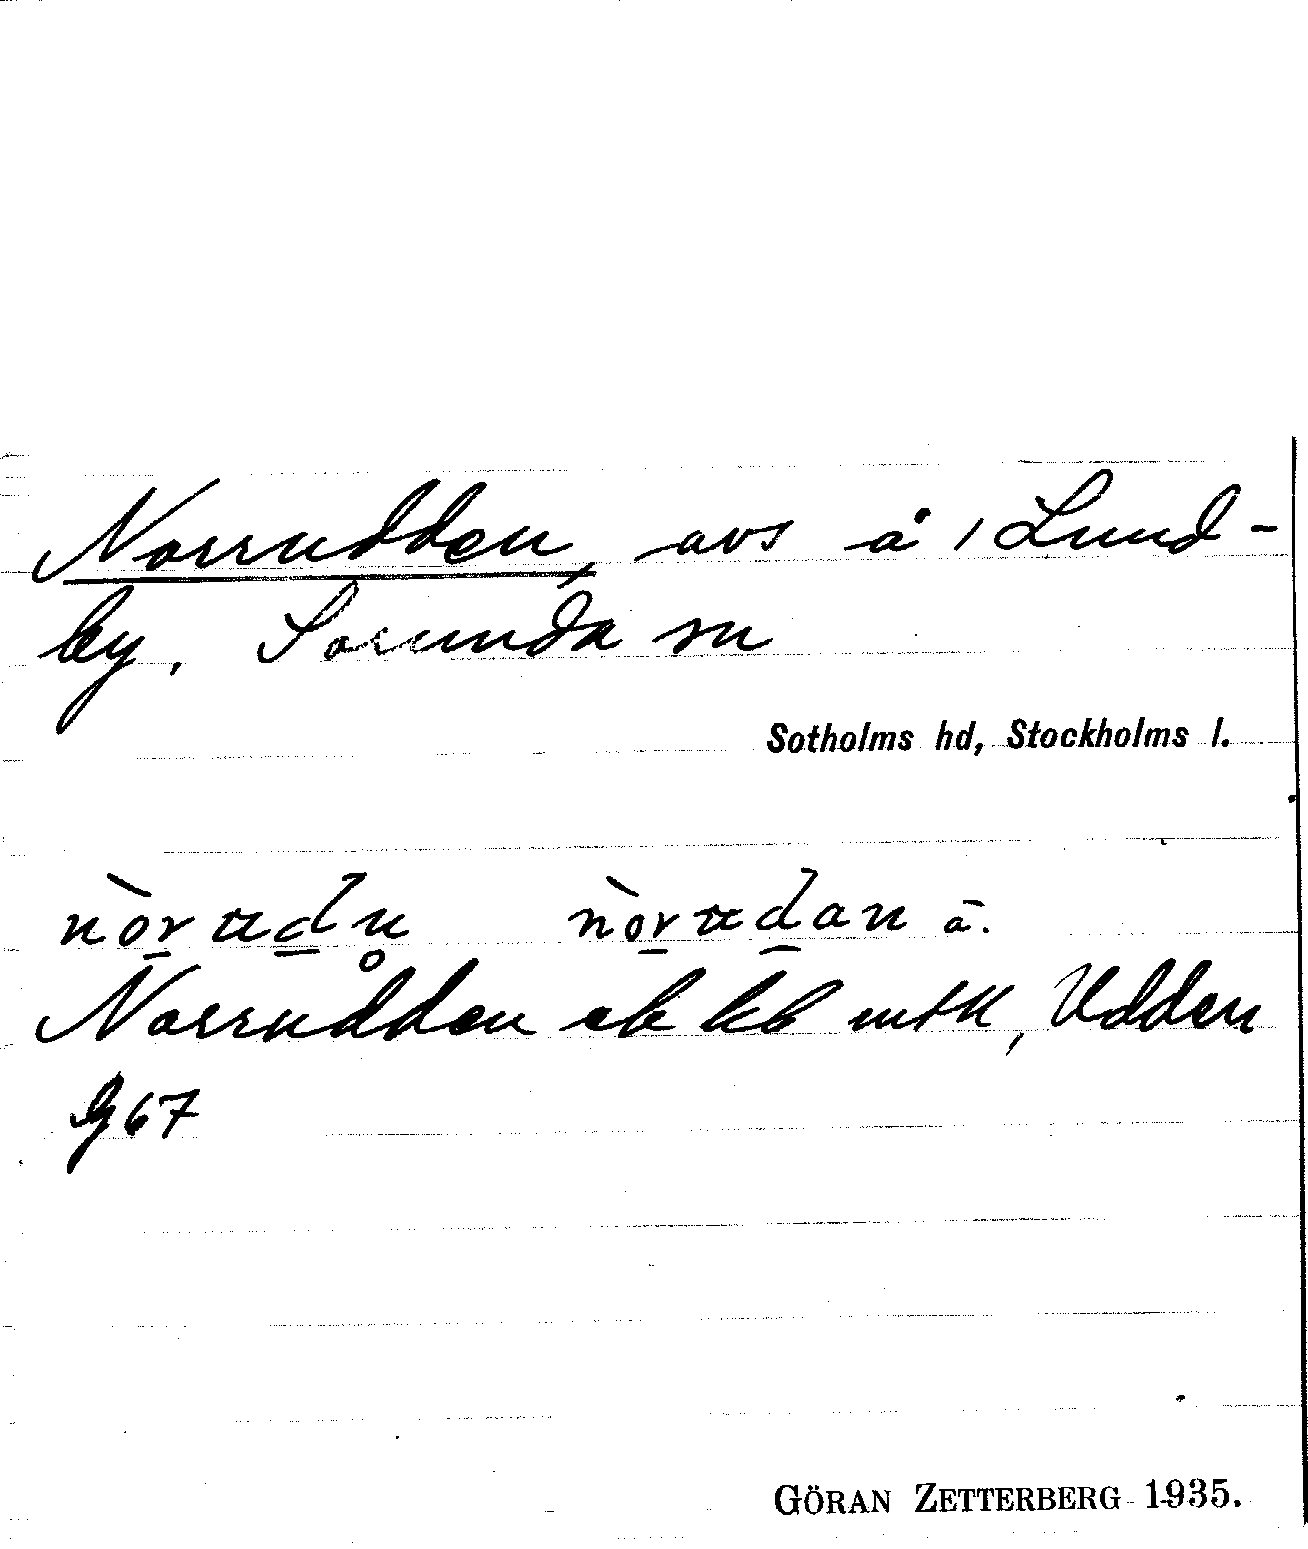 Norrudden, avs å i Lund-
by, Sorunda sn
Sotholms hd, Stockholms l.
nòrudn̥ nòrudan ä.
Norrudden eb kb mtll, Udden
Jg 67
GÖRAN ZETTERBERG 1935.